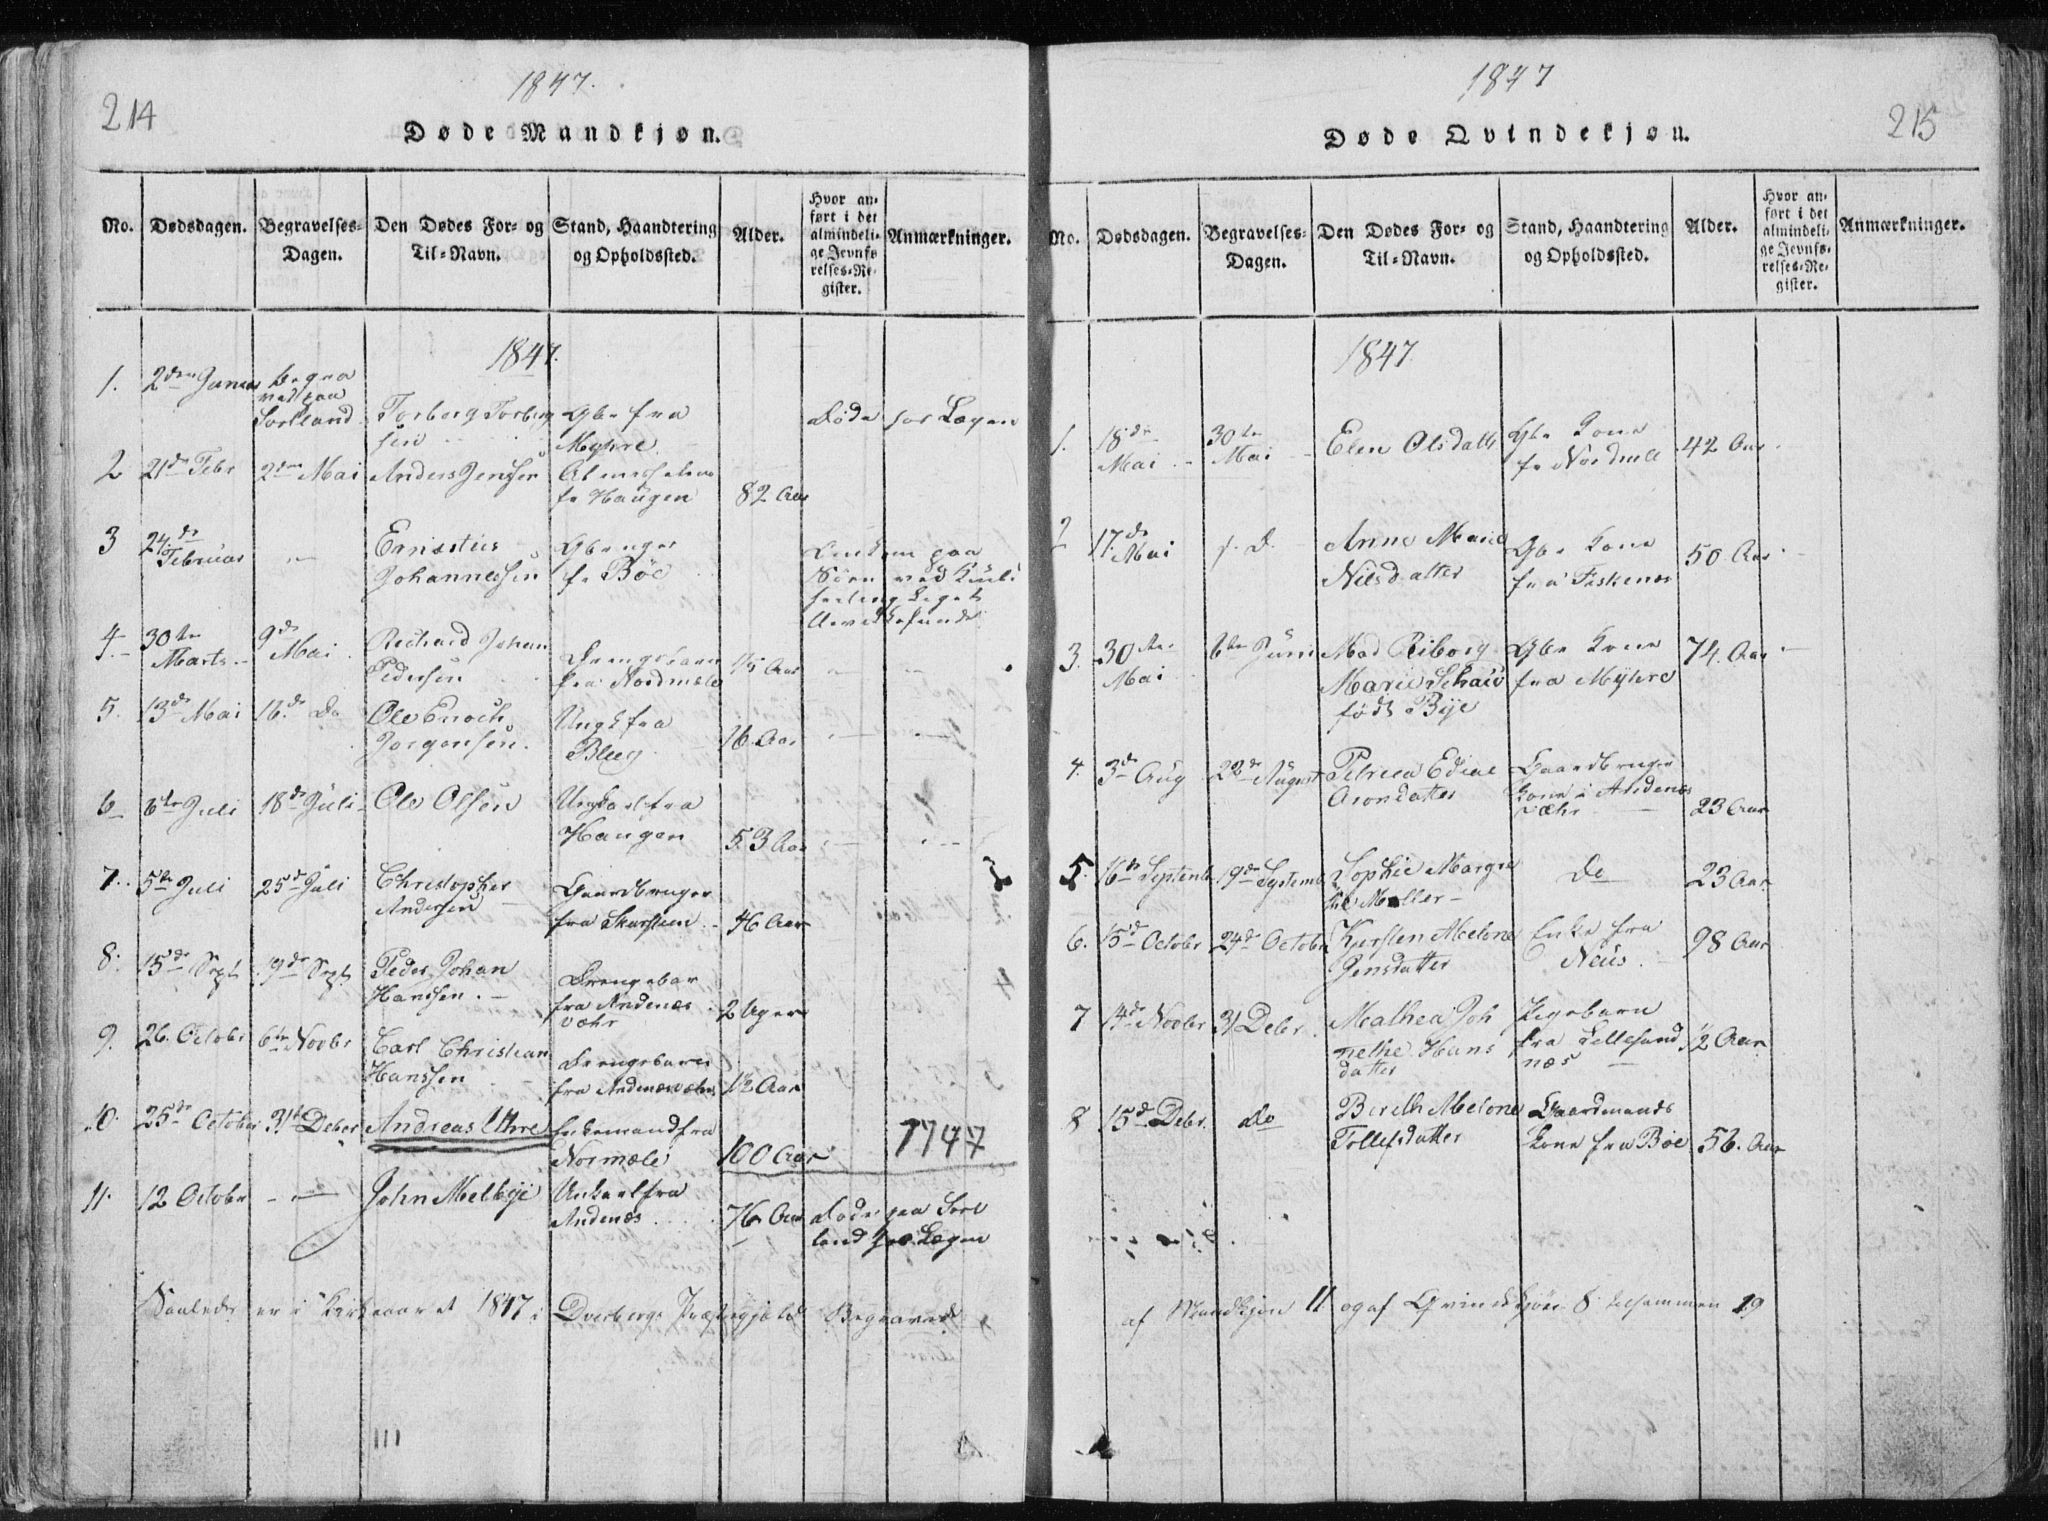 1847.
214
Døde Mandkjøn.
No. Dødsdagen. Begravelses-Dagen. Den Dødes For- og Til-Navn. Stand, Haandtering og Opholdssted. Alder. Hvor anført i det almindelige Jevnførelses-Register. Anmærkninger.
1847.
1. 2den Januar begravet paa Sortland Torberg Torbergsen Gbr fra Myhre Døde hos Lægen
2 21de Febr 2den Mai Anders Jensen fr Haugen 82 Aar
3 24de Februar — Ernæstius Johannessen fr Böe
4 30te Marts 9de Mai Richard Johan Pedersen Drengebarn fra Nordmele Aar
5. 13de Mai 16de Do Ole Enoch Jorgensen Ungk fra Bleeg 16 Aar
6 6te Juli 18de Juli Ole Olsen Ungkarl fra Haugen 53 Aar
7. 5te Juli 25de Juli Christopher Andersen Gaardbruger fra Skarstein 46 Aar
8. 15de Sept 19de Sept Peder Johan Hanssen Drengebar fra Andenæs væhr 2 Uger
9. 26 Octobr 6te Novbr Carl Christian Hanssen Drengebarn fra Andenæsvæhr 1½ Aar
10. 25de October 31te Deber Andreas Uhre Enkemand fra Normæle 100 Aar 1747
11. 12 Octobr — John Melbye Unkarl fra Andenæs 76 Aar Døde paa Sortland hos Lægen
Saaledes er i Kirkeaaret 1847 i Dverbergs Præstegjeld Begravet
111
1847
215
Døde Qvindekjøn.
No. Dødsdagen. Begravelses-Dagen. Den Dødes For- og Til-Navn. Stand, Haandtering og Opholdssted. Alder. Hvor anført i det almindelige Jevnførelses-Register. Anmærkninger.
1847.
1. 18de Mai 30te Mai Elen Olsdatt Gbr Kone fr Nordmel 42 Aar
2 17de Mai s. D. Anne Marie Nilsdatter Gbr Kone fra Fiskenæs 50 Aar
3. 30te Mai 6te Juni Mad Riborg Marie Schaie født Bye Gbr Kone fra Myhre 74 Aar
4. 3de Aug 22de August Petrica Edial Arondatter Gaardbruger Kone i Andenæs væhr 23 Aar
5. 16de Septemb. 19de Septemb Sophie Margrethe Møller Do 23 Aar
6. 15de Octobr 24de Octobr Kjersten Melone Jensdatter Enke fra Næus 98 Aar
7 14de Novbr 31 Debr. Malhea Johnethe Hansdatter Pigebarn fra Lillesandnæs ½ Aar
8 15de Debr. do Bireth Melone Tollefsdatter Gaardmands Kone fra Bøe 56. Aar
af Mandkjøn 11 og af Qvindekjøn 8 tilsammen 19